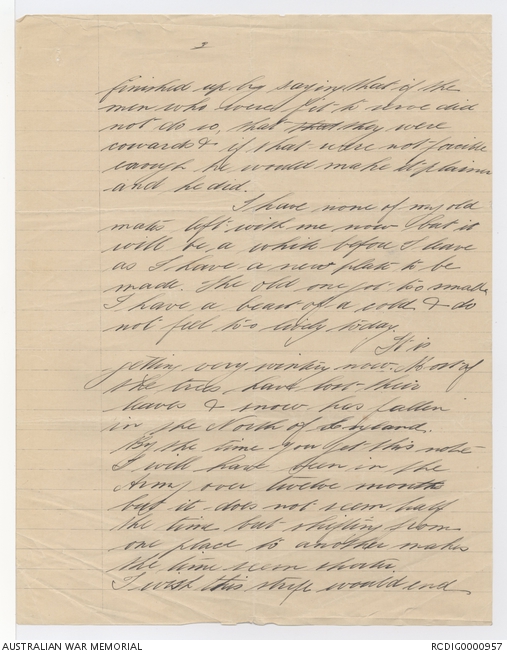 3
finished up by saying that if the
men who were fit to serve did
not do so, that that they were
cowards & if that were not forcible
enough he would make it plainer
and he did.
I have none of my old
mates left with me now but it
will be a while before I leave
as I have a new plate to be
made. The old one got too small.
I have a beast of a cold & do
not feel too lively today.
It is
getting very wintry now. Most of
the trees have lost their
leaves & snow has fallen
in the North of England.
By the time you get this note
I will have been in the
Army over twelve months
but it does not seem half
the time but shifting from
one place to another makes
the time seem shorter.
I wish this strife would end
AUSTRALIAN WAR MEMORIAL
RCDIG0000957